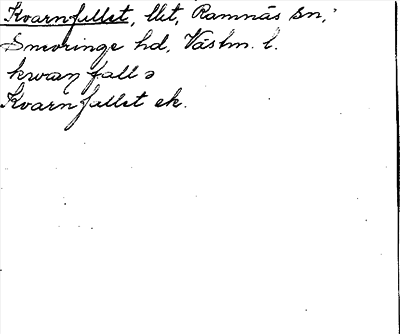 Kvarnfallet, llet, Ramnäs sn,
Snevringe hd, Västm. l.
kwaṇ fall ə
Kvarnfallet ek.